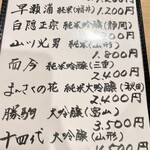 早瀬浦 純米(福井) 1,200円
白隠正宗 純米吟醸(静岡)
山川光男 純米(山形)
1,800円
而今 純米吟醸(三重)
2,400円
まんさくの花 純米大吟醸(秋田)
2,400円
勝駒 大吟醸(富山)
3,500円
十四代 大吟醸(山形)
4,500円